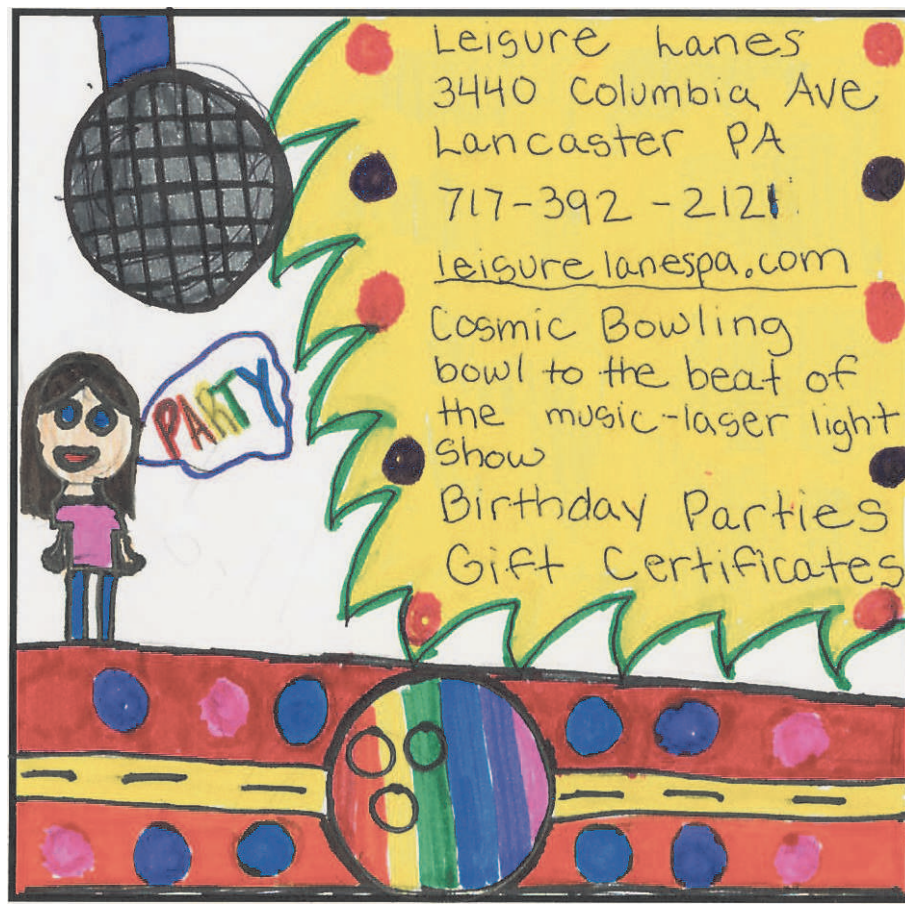 Leisure Lanes
3440 Columbia Ave
Lancaster PA
717-392-2121
leisurelanespa.com
Cosmic Bowling
bowl to the beat of
the music-laser light
show
Birthday Parties
Gift Certificates
PARTY